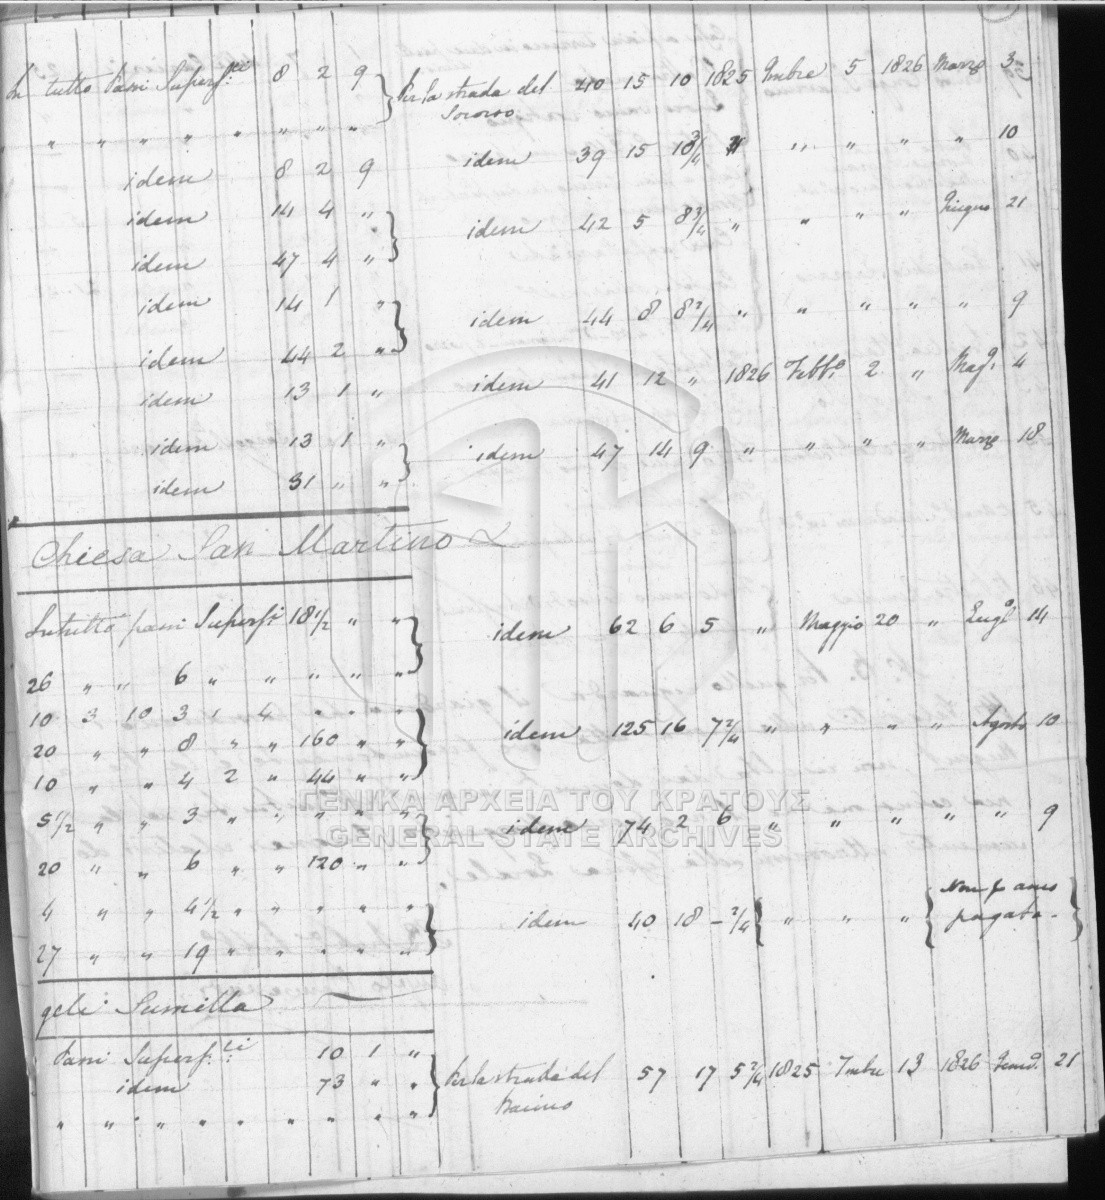 In tutto Passi Superf.ci 8 2 9 } Per la strada del 40 15 10 1825 9mbre 5 1826 Marzo 3
Socorso
" " " " " " " "
idem 39 15 10 3/4 " " " " " 10
idem 8 2 9
idem 14 4 " } idem 42 5 8 3/4 " " " " Giugno 21
idem 47 4 "
idem 14 1 " } idem 44 8 8 2/4 " " " " " 9
idem 44 2 "
idem 13 1 " idem 41 12 " 1826 Febb.o 2 " Mag.o 4
idem 13 1 " } idem 47 14 9 " " " " Marzo 18
idem 31 " "
Chiesa San Martino
In tutto passi Superf.i 18 1/2 " " } idem 62 6 5 " Maggio 20 " Lugl.o 14
26 " " 6 " " " " "
10 3 10 3 1 4 " " " } idem 125 16 7 2/4 " " " " Agosto 10
20 " " 8 " " 160 " "
10 " " 4 2 " 44 " "
5 1/2 " " 3 " " " " " } idem 74 2 6 " " " " " 9
20 " " 6 " " 120 " "
4 " " 4 1/2 " " " " " } idem 40 18 - 2/4 { " " " { Non fu anco
pagata }
27 " " 19 " " " " "
Sumilla
Passi Superf.ci 10 1 " } Per la strada del 57 17 5 2/4 1825 7mbre 13 1826 Genn.o 21
idem 73 " "
" " " " " " " " "
ΓΕΝΙΚΑ ΑΡΧΕΙΑ ΤΟΥ ΚΡΑΤΟΥΣ
GENERAL STATE ARCHIVES